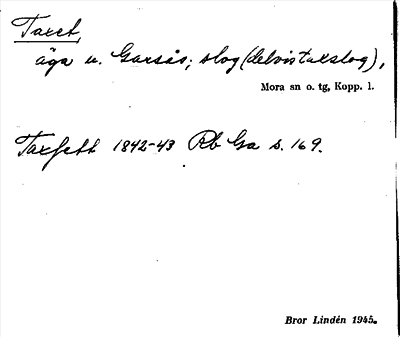 Taxet,
äga u. Garsås; slog (delvis taxslog),
Mora sn o. tg, Kopp. l.
Taxfett 1842-43 Rb Ga s. 169.
Bror Lindén 1945.